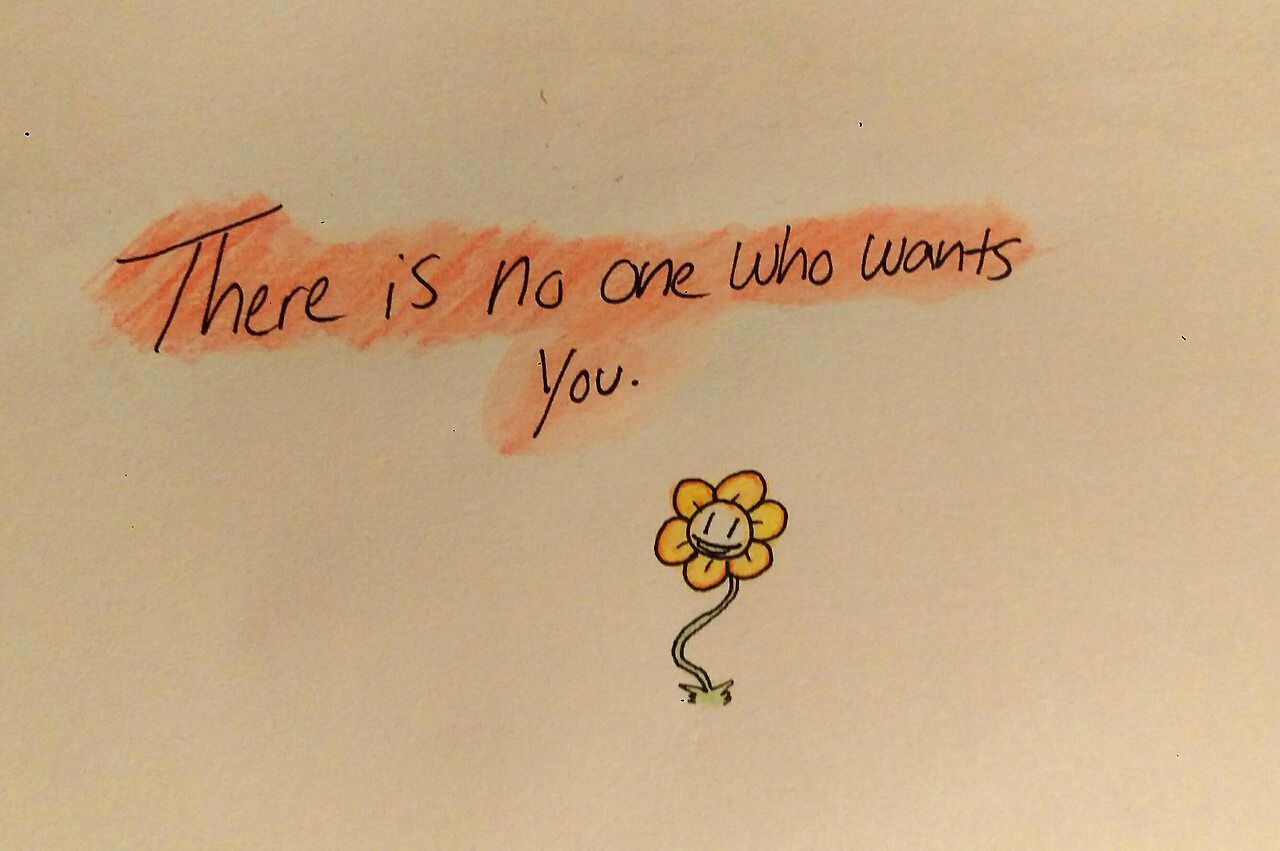 There is no one who wants
you.